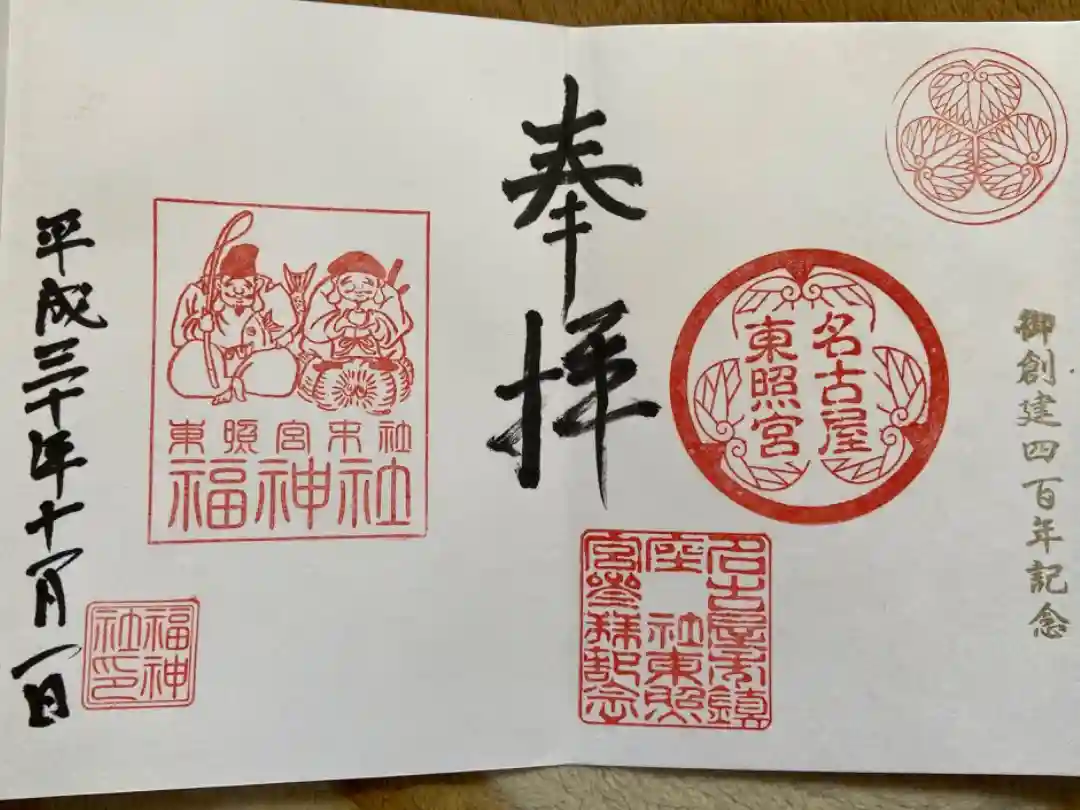 御創建四百年記念
名古屋
東照宮
名古屋市鎮
座 社東照
宮参拝記念
奉拝
東照宮末社
福神社
福神
社印
平成三十年十一月一日